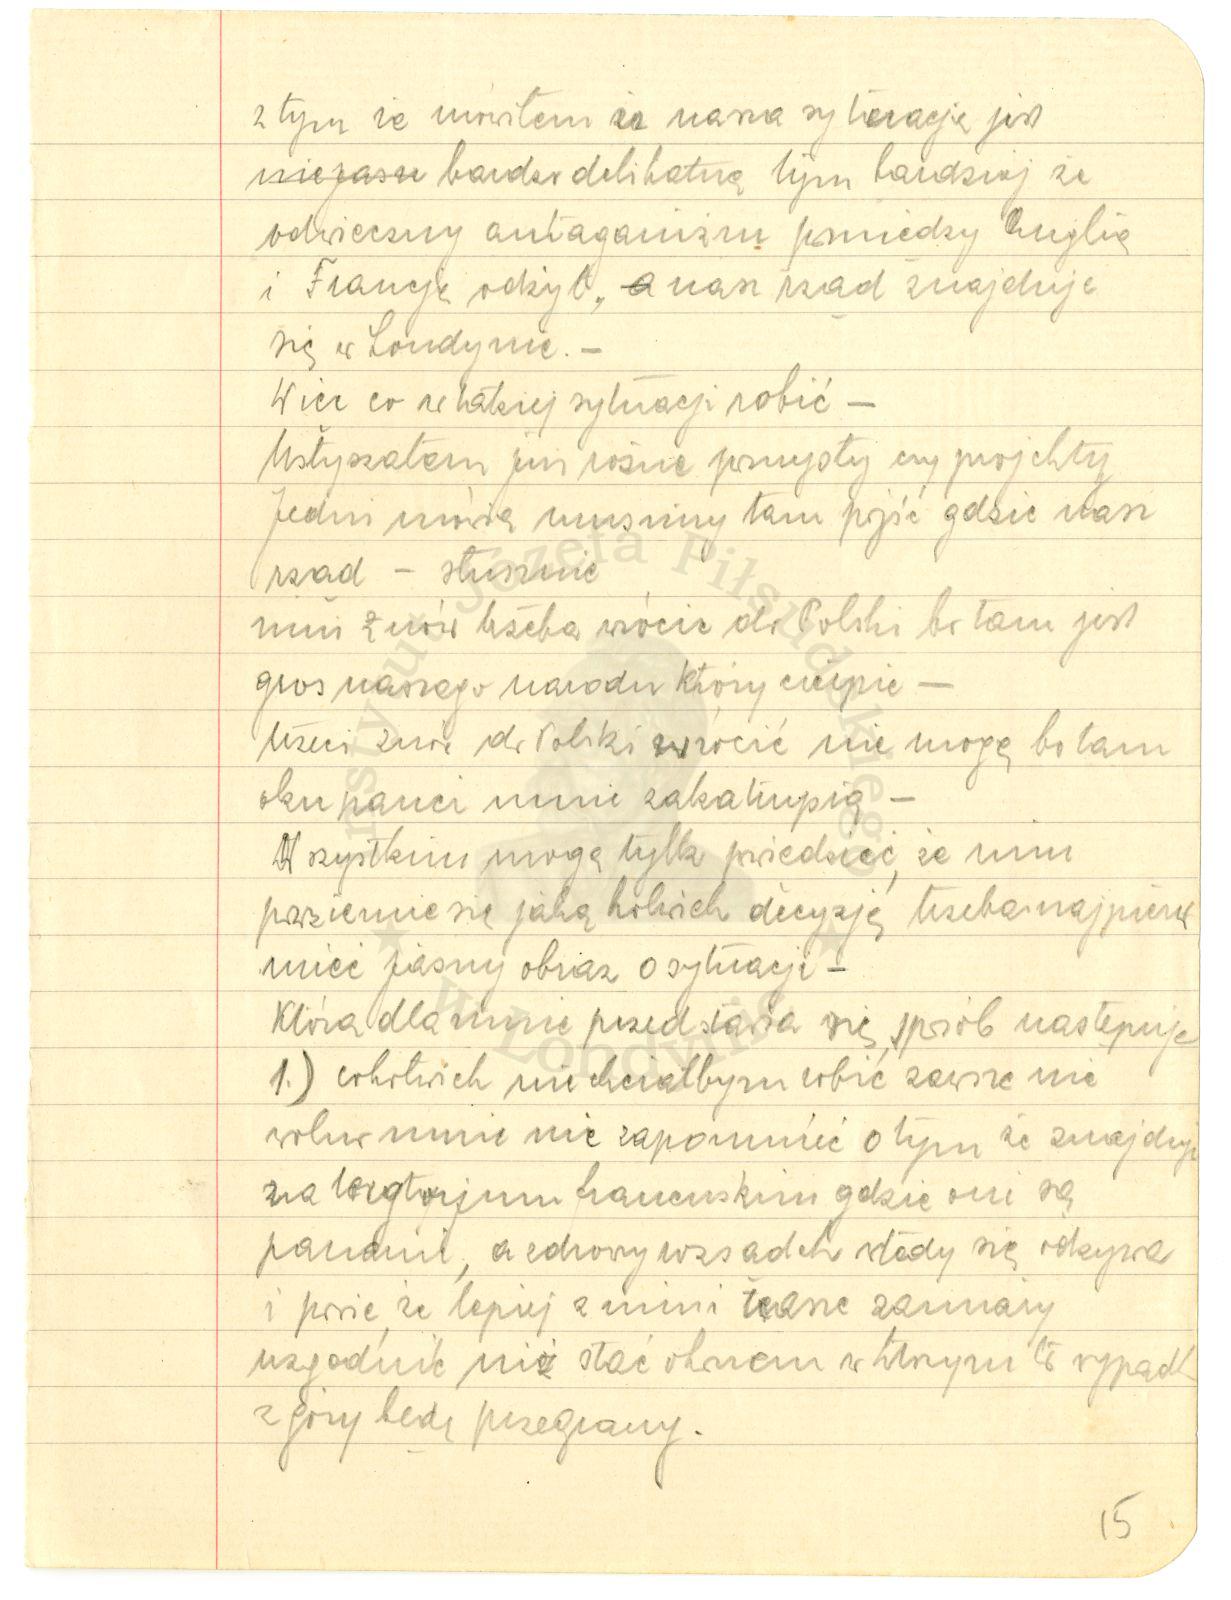 z tym że mówiłem że nasza sytuacja jest
niejasn bardzo delikatną tym bardziej że
odwieczny antagonizm pomiedzy Anglią
i Francję odżył, a nasz rząd znajduje
się w Londynie. –
Wiec co w takiej sytuacji robić –
Usłyszałem już rożne pomysły czy projekty
Jedni mówią musimy tam pójść gdzie nasz
rząd – słusznie
inni znów trzeba wrócic do Polski bo tam jest
gros naszego narodu który cierpie –
trzeci znów do Polski wrócić nie mogą bo tam
okupanci mnie zakatrupią –
Wszystkim mogę tylko powiedzieć, że nim
powziemie się jaką kolwiek decyzję trzeba najpierw
mieć jasny obraz o sytuacji –
Która dla mnie przedstawia się sposób nastepuje
1.) cokolwiek niechciałbym robić zawsze nie
wolno mnie nie zapomnieć o tym że znajduje
na terytorjum francuskim gdzie oni są
panami, a zdrowy rozsadek wtedy się odzywa
i powie, że lepiej z nimi zamiary
uzgodnić niż stać okoniem w którym to wypadk
z góry będę przegrany.
15
Instytut Józefa Piłsudskiego
w Londynie